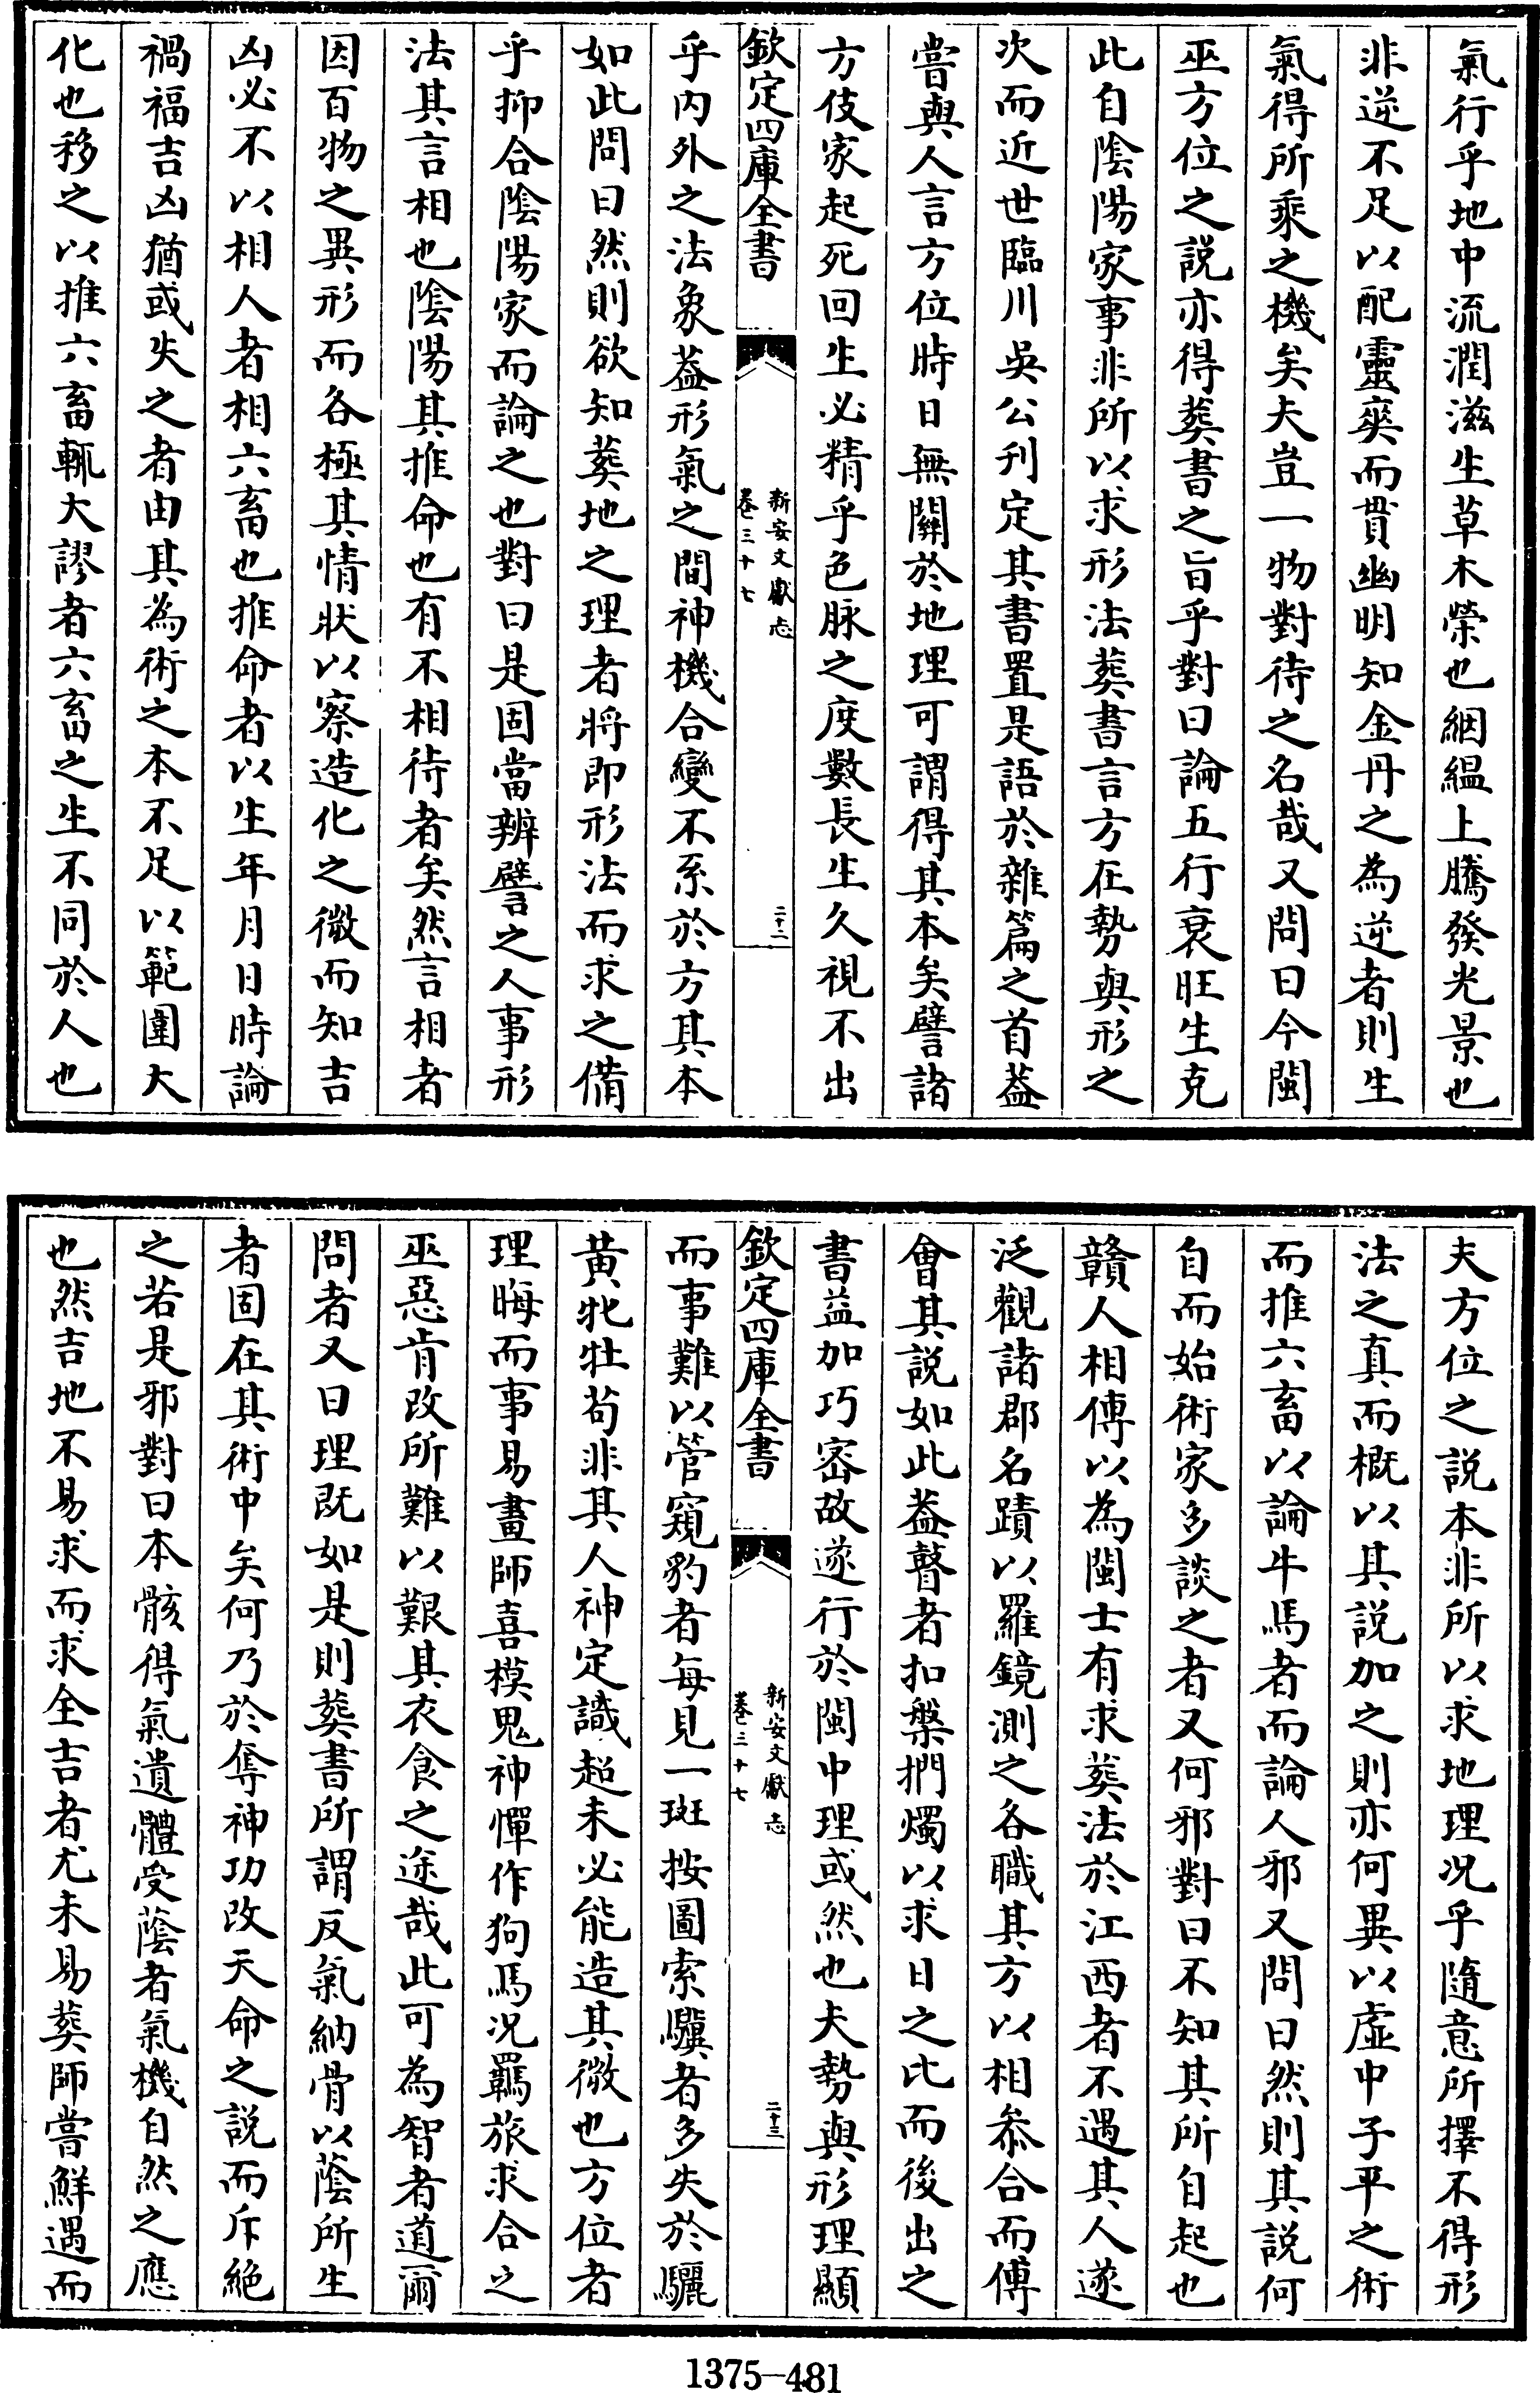 氣行乎地中流潤滋生草木榮也絪緼上騰發光景也
非逆不足以配靈爽而貫幽明知金丹之為逆者則生
氣得所乘之機矣夫豈一物對待之名哉又問曰今閩
巫方位之説亦得葬書之旨乎對曰論五行衰旺生克
此自陰陽家事非所以求形法葬書言方在勢與形之
次而近世臨川吳公刋定其書置是語於雜篇之首葢
嘗與人言方位時日無關於地理可謂得其本矣譬諸
方伎家起死回生必精乎色脉之度數長生久視不出
欽定四庫全書
新安文獻志
卷三十七
二十二
乎内外之法象葢形氣之間神機合變不系於方其本
如此問曰然則欲知葬地之理者將即形法而求之備
乎抑合陰陽家而論之也對曰是固當辨譬之人事形
法其言相也陰陽其推命也有不相待者矣然言相者
因百物之異形而各極其情狀以察造化之微而知吉
凶必不以相人者相六畜也推命者以生年月日時論
禍福吉凶猶或失之者由其為術之本不足以範圍大
化也移之以推六畜輒大謬者六畜之生不同於人也
夫方位之説本非所以求地理况乎隨意所擇不得形
法之真而概以其説加之則亦何異以虚中子平之術
而推六畜以論牛馬者而論人邪又問曰然則其説何
自而始術家多談之者又何邪對曰不知其所自起也
贛人相傳以為閩士有求葬法於江西者不遇其人遂
泛觀諸郡名蹟以羅鏡測之各職其方以相叅合而傳
會其説如此葢瞽者扣槃捫燭以求日之比而後出之
書益加巧宻故遂行於閩中理或然也夫勢與形理顯
欽定四庫全書
新安文獻志
卷三十七
二十三
而事難以管窺豹者每見一斑按圖索驥者多失於驪
黄牝牡苟非其人神定識超未必能造其微也方位者
理晦而事易畫師喜模鬼神憚作狗馬况羈旅求合之
巫惡肯改所難以艱其衣食之途哉此可為智者道爾
問者又曰理既如是則葬書所謂反氣納骨以䕃所生
者固在其術中矣何乃於奪神功改天命之説而斥絶
之若是邪對曰本骸得氣遺體受䕃者氣機自然之應
也然吉地不易求而求全吉者尤未易葬師嘗鮮遇而
1375—481